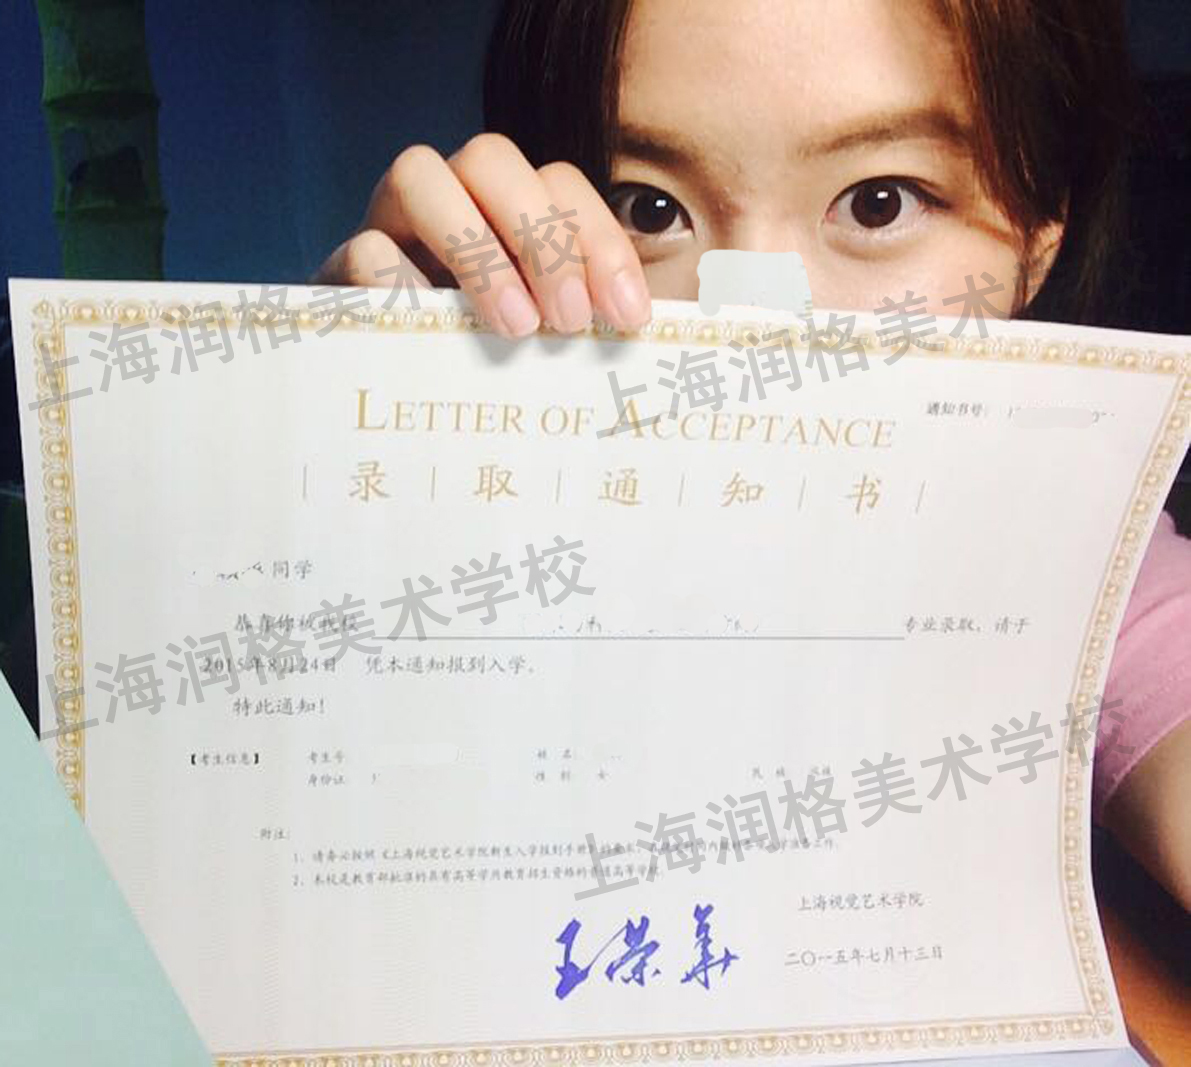 LETTER OF ACCEPTANCE
通知书号:
录取通知书
同学
恭喜你被我校 专业录取,请于
2015年8月24日 凭本通知报到入学。
特此通知!
【考生信息】 考生号 姓名:
身份证 性别 女 民族 汉族
附注:
1、请务必按照《上海视觉艺术学院新生入学报到手册》的要求,
2、本校是教育部批准的具有高等学历教育招生资格的普通高等学校
上海视觉艺术学院
王荣华
二〇一五年七月十三日
上海润格美术学校
上海润格美术
上海润格美术学校
上海润格美术学校